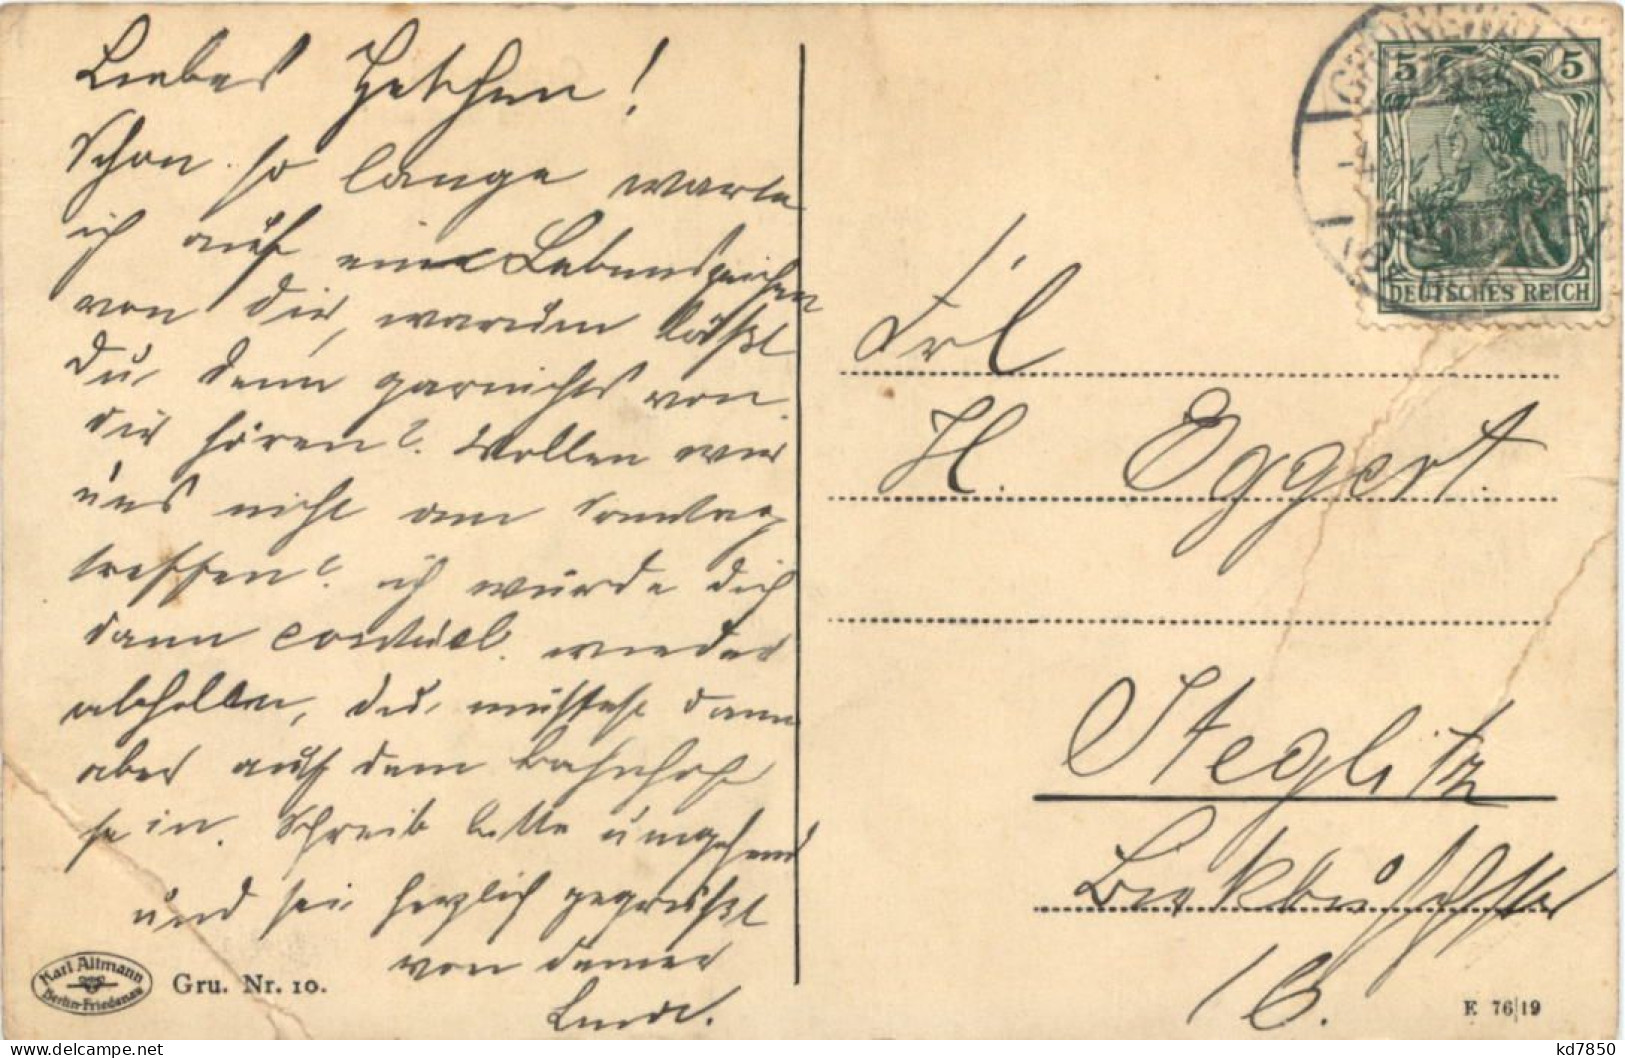 Liebes Hetchen!
Schon so lange warte
ich auf ein Lebenszeichen
von dir, warum läßt
du denn garnichts von
dir hören? Wollen wir
uns nicht am Sonntag
treffen? ich würde dich
dann eventuel. wieder
abholen, du müßtest dann
aber auf dem Bahnhof
sein. Schreib bitte umgehend
und sei herzlich gegrüßt
von deiner
Karl Altmann
Berlin-Friedenau
Gru. Nr. 10.
5 5
DEUTSCHES REICH
GRUNEWALD
Frl
H. Eggert.
Steglitz
Birkbuschstr
16.
E 76/19
kd7850